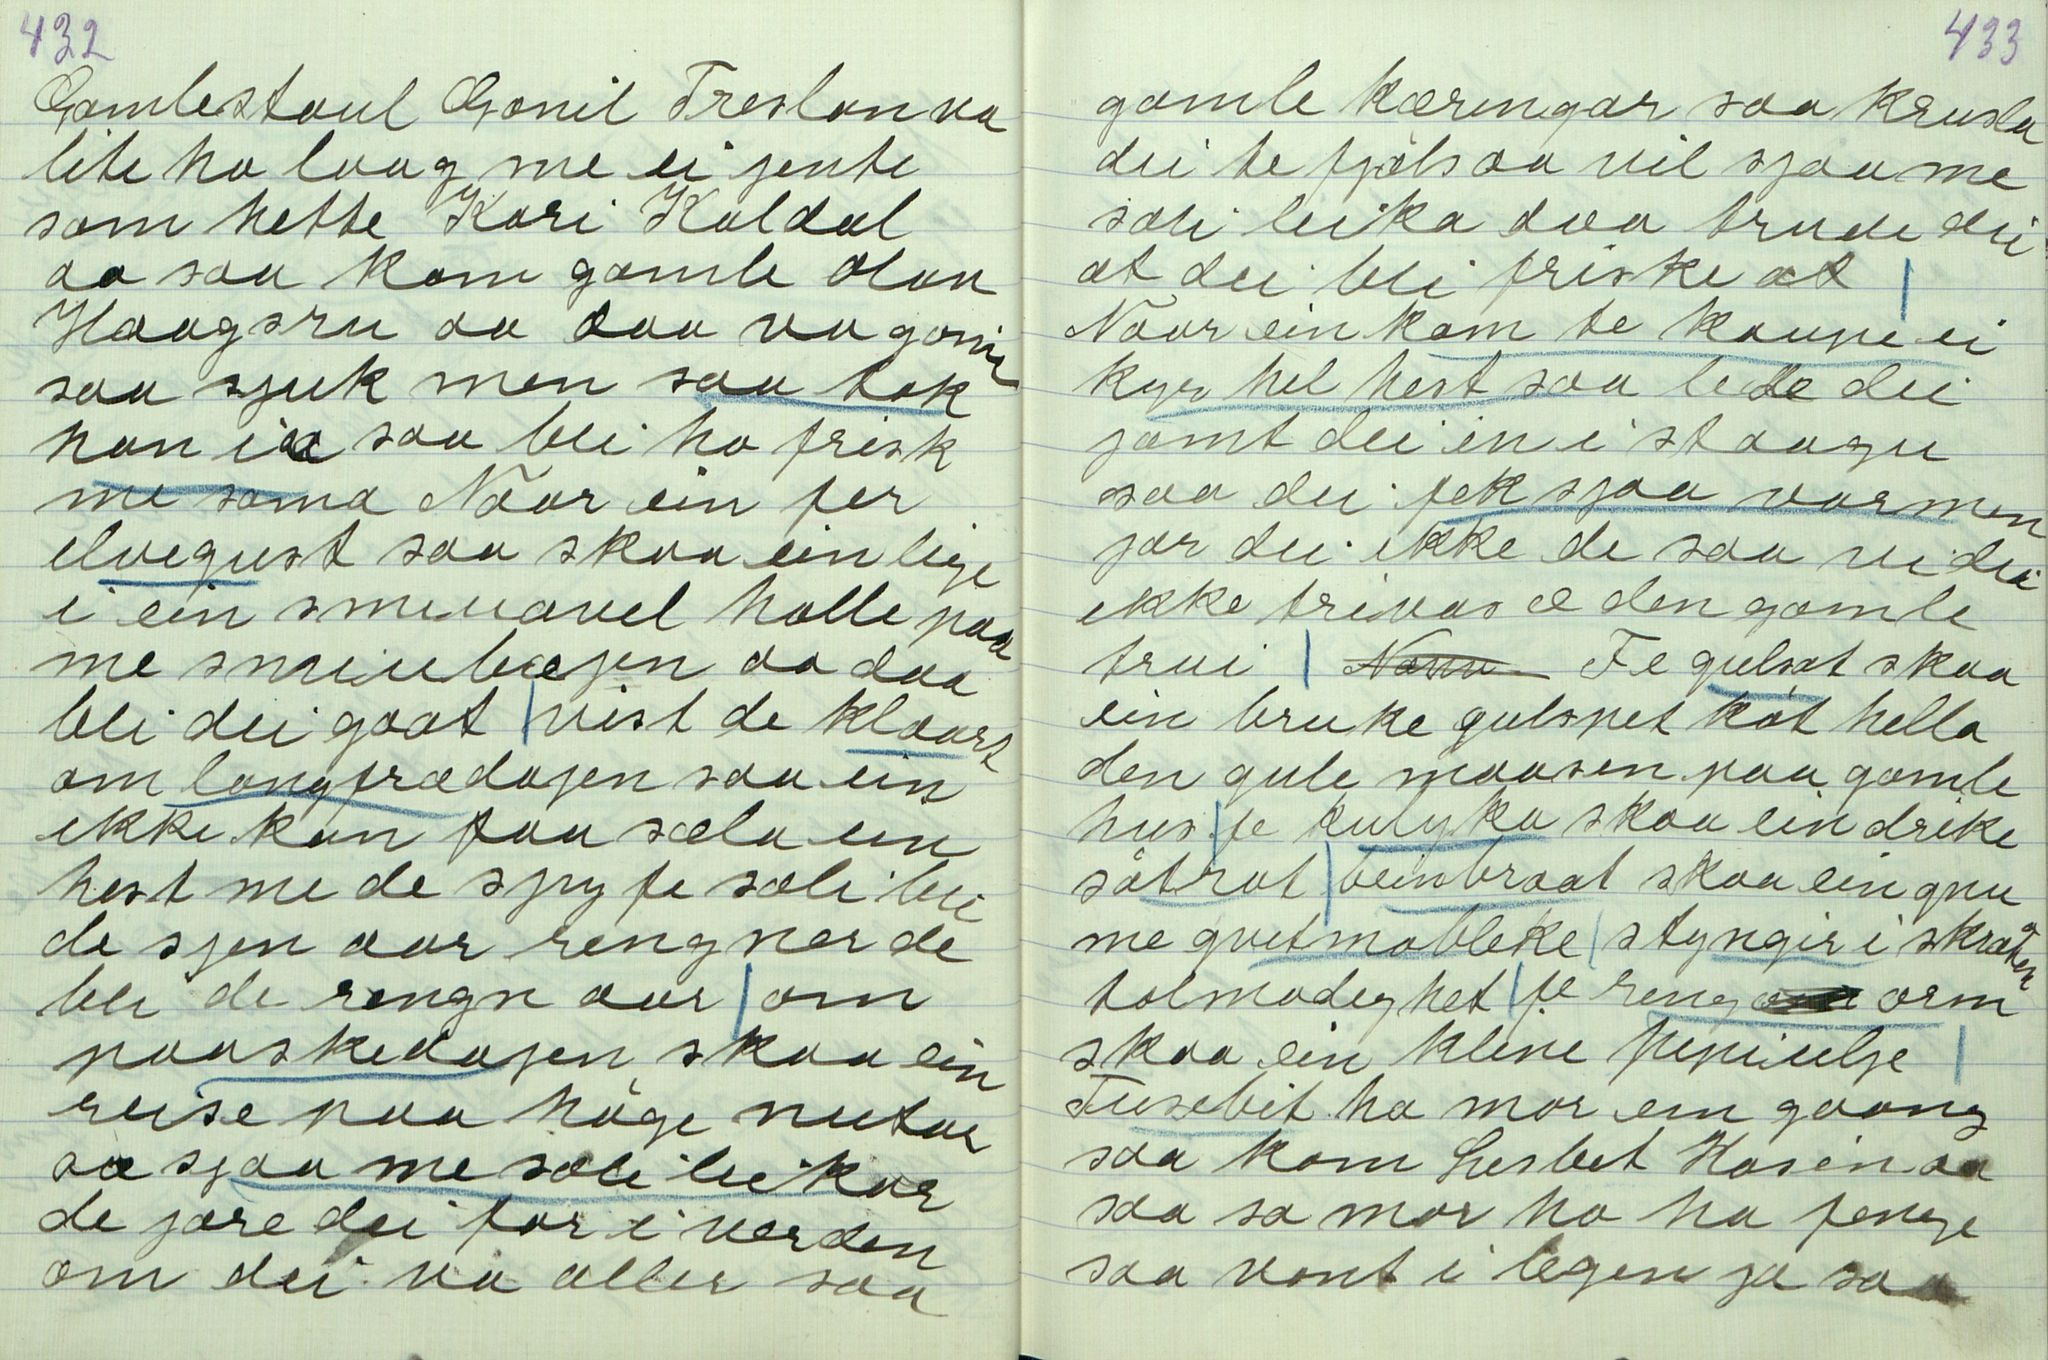 432
Gamlestoul Gonil Treslon va
lite ho laag me ei jente
som hette Kari Kaldal
aa saa kom gamle Olav
Haagsru aa daa va gonil
saa sjuk men saa tok
han ia saa blei ho frisk
me soma Naar ein fer
elvegust saa skaa ein lige
i ein smiuavel halle paa
me smiubægjen aa daa
blei dei goat vist de klaars
om langfrædagen saa ein
ikke kan faa sæla ein
hest me de spy fe sæli blei
de sjen aar rengner de
blei de rengn aar om
paaskedagen skaa ein
reise paa høge nutar
aa sjaa me soli leikar
de jøre dei for i verden
om dei va aller saa
433
gamle kæringar saa krusla
dei te fjøls aa vil sjaa me
soli leika daa trude dei
at dei blei friske at
Naar ein kom te kaupe ei
kyr hel hest saa lede dei
jamt dei in i staagu
saa dei fek sjaa varmen
jør dei ikke de saa vi dei
ikke trivas æ den gamle
trui Fe gulsot skaa
ein bruke gulspet køt hella
den gule maasen paa gamle
hus fe kulyka skaa ein drike
søtrot beinbraat skaa ein gnu
me qvetmableke styngir i skratten
tolmodighet fe reng orm
skaa ein kline pipiulje
Tusebit ha mor ein gaang
saa kom Lisbet Hasen aa
saa sa mor ho ha fenge
saa vont i legen ja saa